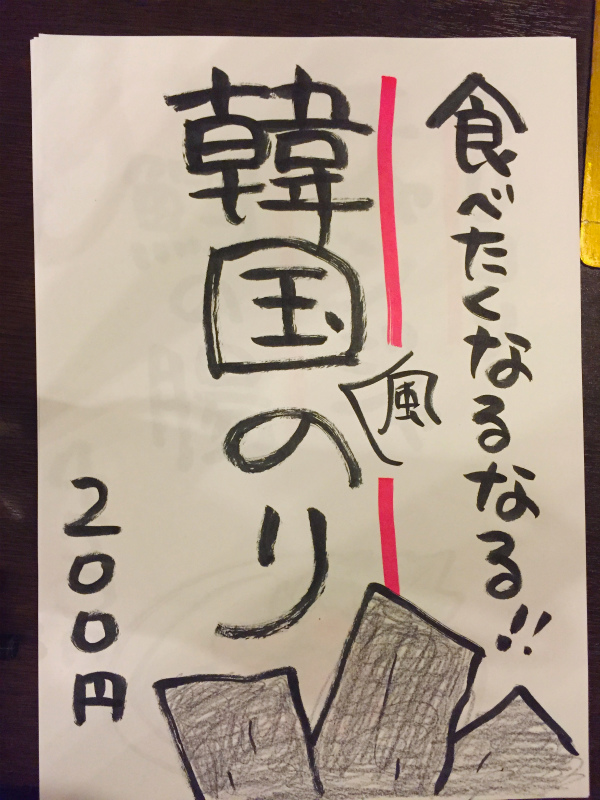 食べたくなるなる!!
韓国風のり
200円